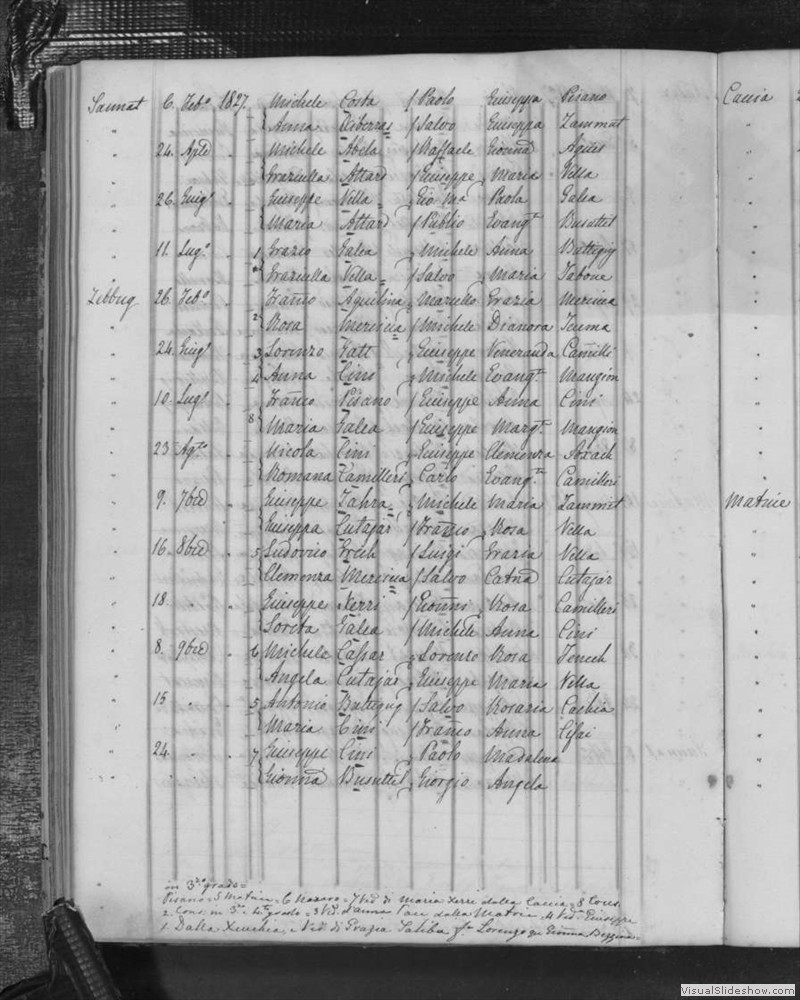 Sannat 6. Feb.º 1827. Michele Costa f Paolo Giuseppa Pisano Caccia
" Anna Aiberras f Salvo Giuseppa Zammut
" 24. Ag.to " Michele Abela f Raffaele Gionna Agius
" Graziulla Attard f Giuseppe Maria Vella
" 26. Giug.º " Giuseppe Vella Gio Ma Paola Galea
" Maria Attard f Publio Evang.ta Busuttil
" 11. Lug.º " 1 Grazio Galea Michele Anna Buttigig
" Graziulla Vella f Salvo Maria Tabone
Zebbug 26. Feb.º " Franco Aquilina Marcello Grazia Mercieca
" 2 Rosa Mercieca f Michele Dianora Teuma
" 24. Giug.º " 3 Lorenzo Gatt Giuseppe Veneranda Camilli
" 4 Anna Cini Michele Evang.ta Mangion
" 10. Lug.º " Franco Pisano f Giuseppe Anna Cini
" 8 Maria Galea f Giuseppe Marg.ta Mangion
" 23 Ag.to " Nicola Cini Giuseppe Clemenza Axiach
" Romana Camilleri Carlo Evang.ta Camilleri
" 9. 7bre " Giuseppe Zahra Michele Maria Zammit Matrice
" Giuseppa Cutajar f Franco Rosa Vella
" 16. 8bre " 5 Ludovico Grech f Luigi Grazia Vella
" Clemenza Mercieca f Salvo Catna Cutajar
" 18. " " Giuseppe Xerri f Gionni Rosa Camilleri
" Loreta Galea f Michele Anna Cini
" 8. 9bre " 6 Michele Cassar Lorenzo Rosa Tenech
" Angela Cutajar Giuseppe Maria Vella
" 15 " " 5 Antonio Buttigig f Salvo Rosaria Cachia
" Maria Cini f Franco Anna
" 24. " " 7 Giuseppe Cini Paolo Madalena
" Gionna Busuttil Giorgio Angela
in 3.º grado =
Pisano = 5 Matrice = 6 Nazaro = 7 Ved. di Maria Xerri dalla Caccia = 8 Cons.
2 Cons. in 3.º e 4.to grado = 3 Ved. d'Anna dalla Matrice = 4 Ved. Giuseppe
1. Dalla Xeuchia, e Ved. di Grazia Saliba f.a Lorenzo Gionna
VisualSlideshow.com